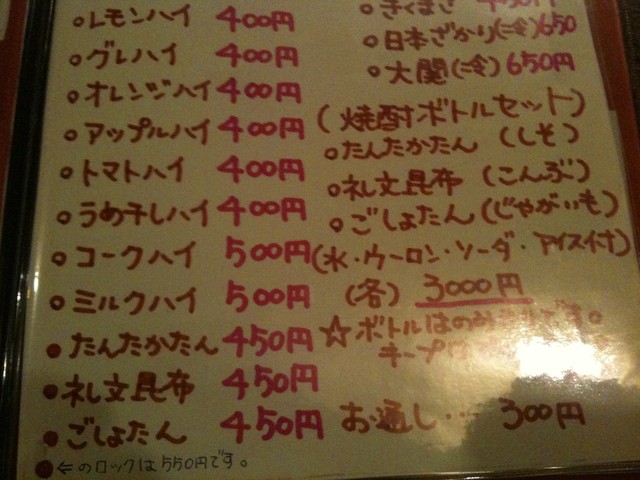 ○レモンハイ 400円
○グレハイ 400円
○オレンジハイ 400円
○アップルハイ 400円
○トマトハイ 400円
○うめ干しハイ 400円
○コークハイ 500円
○ミルクハイ 500円
●たんたかたん 450円
●礼文昆布 450円
●ごしょたん 450円
●⇐のロックは550円です。
○きくまさ 450円
○日本ざかり(冷)650
○大関(冷)650円
(焼酎ボトルセット)
○たんたかたん (しそ)
○礼文昆布 (こんぶ)
○ごしょたん(じゃがいも)
(水・ウーロン・ソーダ・アイス付)
(各) 3000円
☆ボトルはのみ です。
キープ
お通し… 300円